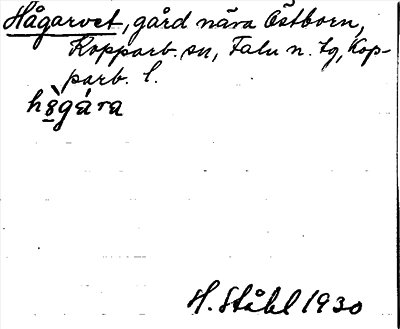 Hågarvet, gård nära Östborn,
Kopparb. sn, Falu n. tg, Kop-
parb. l.
H. Ståhl 1930